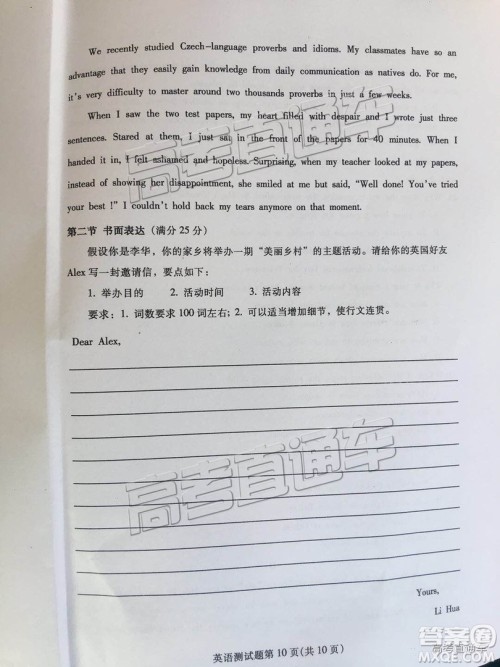 We recently studied Czech-language proverbs and idioms. My classmates have so an
advantage that they easily gain knowledge from daily communication as natives do. For me,
it's very difficulty to master around two thousands proverbs in just a few weeks.
When I saw the two test papers, my heart filled with despair and I wrote just three
sentences. Stared at them, I just sat in the front of the papers for 40 minutes. When I
handed it in, I felt ashamed and hopeless. Surprising, when my teacher looked at my papers,
instead of showing her disappointment, she smiled at me but said, "Well done! You've tried
your best!" I couldn't hold back my tears anymore on that moment.
第二节 书面表达（满分25分）
假设你是李华，你的家乡将举办一期“美丽乡村”的主题活动。请给你的英国好友
Alex写一封邀请信，要点如下：
1. 举办目的 2. 活动时间 3. 活动内容
要求：1. 词数要求100词左右；2. 可以适当增加细节，使行文连贯。
Dear Alex,
Yours,
Li Hua
英语测试题第10页(共10页)
高考直通车
高考直通车
高考直通车
答案圈
MXQE.COM